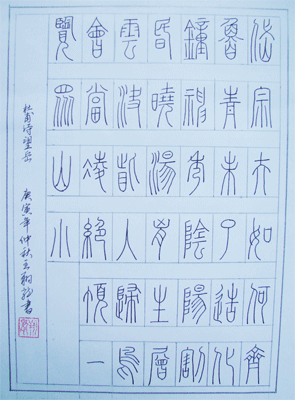 岱宗夫如何齊
魯青未了造化
鐘神秀陰陽割
昏曉湯胸生層
雲決眥入歸鳥
會當凌絕頂一
覽眾山小
杜甫诗望岳 庚寅年仲秋 書